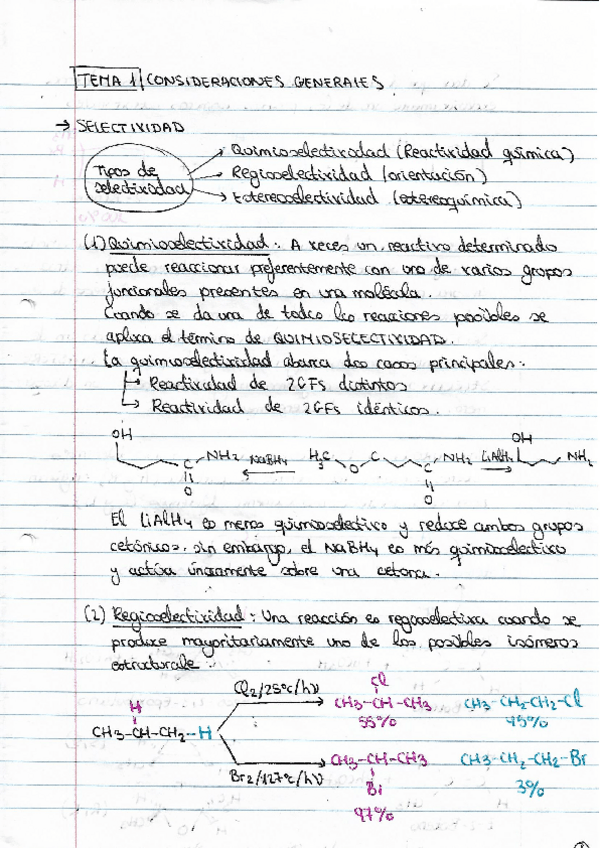 TEMA 1 CONSIDERACIONES GENERALES
→ SELECTIVIDAD
Tipos de selectividad
→ Quimioselectividad (Reactividad química)
→ Regioselectividad (orientación)
→ Estereoselectividad (estereoquímica)
(1) Quimioselectividad: A veces un reactivo determinado
puede reaccionar preferentemente con uno de varios grupos
funcionales presentes en una molécula.
Cuando se da una de todas las reacciones posibles se
aplica el término de QUIMIOSELECTIVIDAD.
La quimioselectividad abarca dos casos principales:
↳ Reactividad de 2GFs distintos
↳ Reactividad de 2GFs idénticos.
OH NH2 NaBH4 H3C O C C NH2 LiAlH4 OH NH2
C O O
El LiAlH4 es menos quimioselectivo y reduce ambos grupos
cetónicos. sin embargo, el NaBH4 es más quimioselectivo
y actúa únicamente sobre una cetona.
(2) Regioselectividad: Una reacción es regioselectiva cuando se
produce mayoritariamente uno de los posibles isómeros
estructurale
Cl2/25ºC/hν
Cl
CH3-CH-CH3 CH3-CH2-CH2-Cl
55% 45%
H
CH3-CH-CH2-H
Br2/127ºC/hν
CH3-CH-CH3 CH3-CH2-CH2-Br
Br 3%
97%